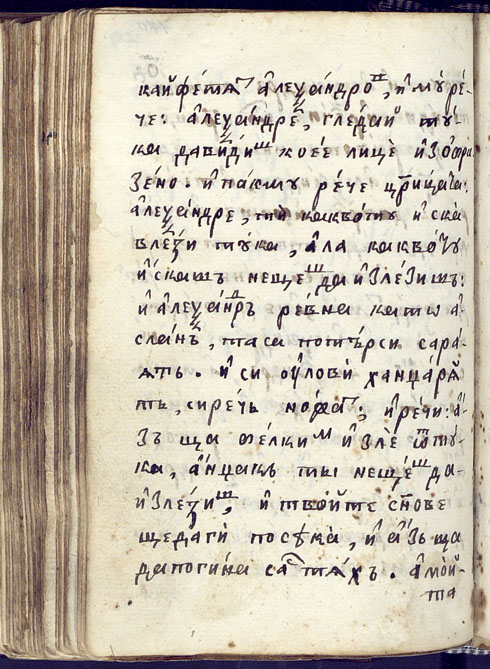 кайфе́тѧ҄ а҆леѯа́ндро, и҆ мꙋ ре́-
че: а҆леѯа́ндре, гле́дай тꙋ́-
ка да ви́диш кое́е лицѐ и҆зѻ҆бра
зено. и҆ пак мꙋ ре́че цр҃ица та:
а҆леѯа́ндре, ти какво то и҆ска
влези тꙋ́ка, а҆ла какво чꙋ
и҆́скашъ неще́ш да и҆зле́зишъ:
и҆ а҆леѯа́ндръ ре́вна като а҆-
сла́нъ, та са попъ́рси сара-
ѧтъ. и҆ си ꙋ҆лови́ ханџа́рѧ
тъ, сире́чь ножа; и҆ ре́чи: а҆-
зъ ща ѳе́лким и҆зле́ ѿтꙋ-
ка, а҆́нџакъ ти неще́ш да-
и҆зле́зиш, и҆ тво́йте сн҃ове
ще да ги́ посѣка̀, и҆ а҆́зъ ща
да поги́на са тѧ́хъ. а҆ мо́й-
та